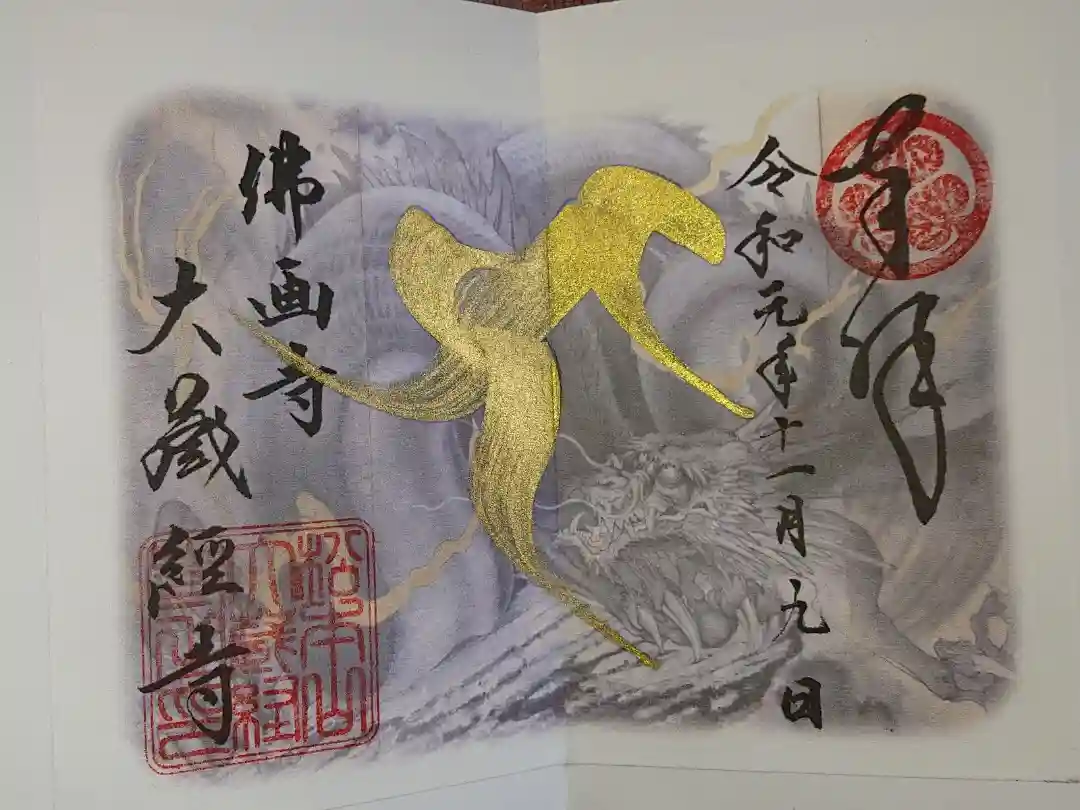 奉拝
令和元年十一月九日
佛画寺
大蔵經寺